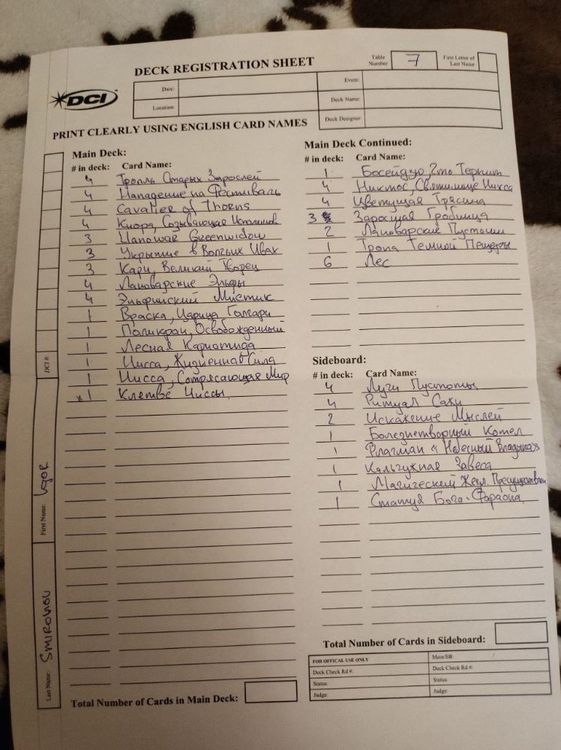 DECK REGISTRATION SHEET
Table Number 7
First Letter of Last Name
DCI
Date:
Event:
Location:
Deck Name:
Deck Designer:
PRINT CLEARLY USING ENGLISH CARD NAMES
Main Deck:
# in deck: Card Name:
4 Тролль Старых Зарослей
4 Нападение на Фестиваль
4 Cavalier of Thorns
4 Киора, Созывающая
3 Greenwidow
3 Укрытие в Ивах
3 Карн, Великий Творец
4 Лановарские Эльфы
4 Эльфийский Мистик
1 Враска, Царица Голгари
1 Поликран, Освобожденный
1 Лесная Кариатида
1 Нисса, Жизненная Сила
1 Нисса, Сотрясающая Мир
1 Клятва Ниссы
Total Number of Cards in Main Deck:
Main Deck Continued:
# in deck: Card Name:
1 Босейдзю, Что Терпит
4 Никтос, Святилище Никса
4 Цветущая Трясина
3 Заросшая Гробница
2 Лановарские Пустоши
1 Тропа Темной Пещеры
6 Лес
Sideboard:
# in deck: Card Name:
4 Луги Пустоты
4 Ритуал Сажи
2 Искажение Мыслей
1 Болезнетворный Котел
1 Флагман «Небесный Владыка»
1 Кольчужная Завеса
1 Магический Жезл
1 Статуя Бога-Фараона
Total Number of Cards in Sideboard:
FOR OFFICAL USE ONLY
Main/SB:
Deck Check Rd #:
Deck Check Rd #:
Status:
Status:
Judge:
Judge:
DCI #:
First Name: Igor
Last Name: Smirnov